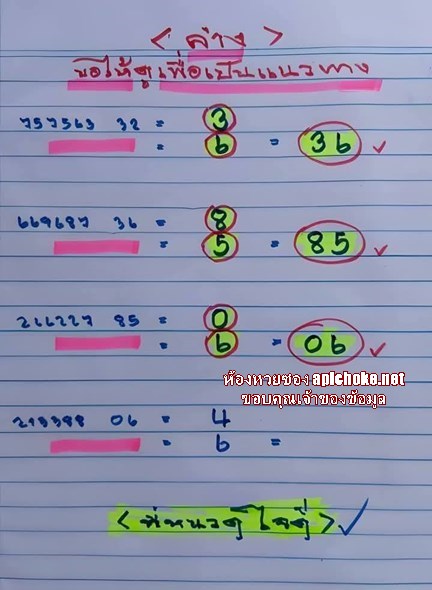 < ล่าง >
ขอให้ดูเพื่อเป็นแนวทาง
757563 32 = 3
= 6 = 36 ✓
669687 36 = 8
= 5 = 85 ✓
216227 85 = 0
= 6 = 06 ✓
ห้องหวยซอง apichoke.net
ขอบคุณเจ้าของข้อมูล
213388 06 = 4
= 6 =